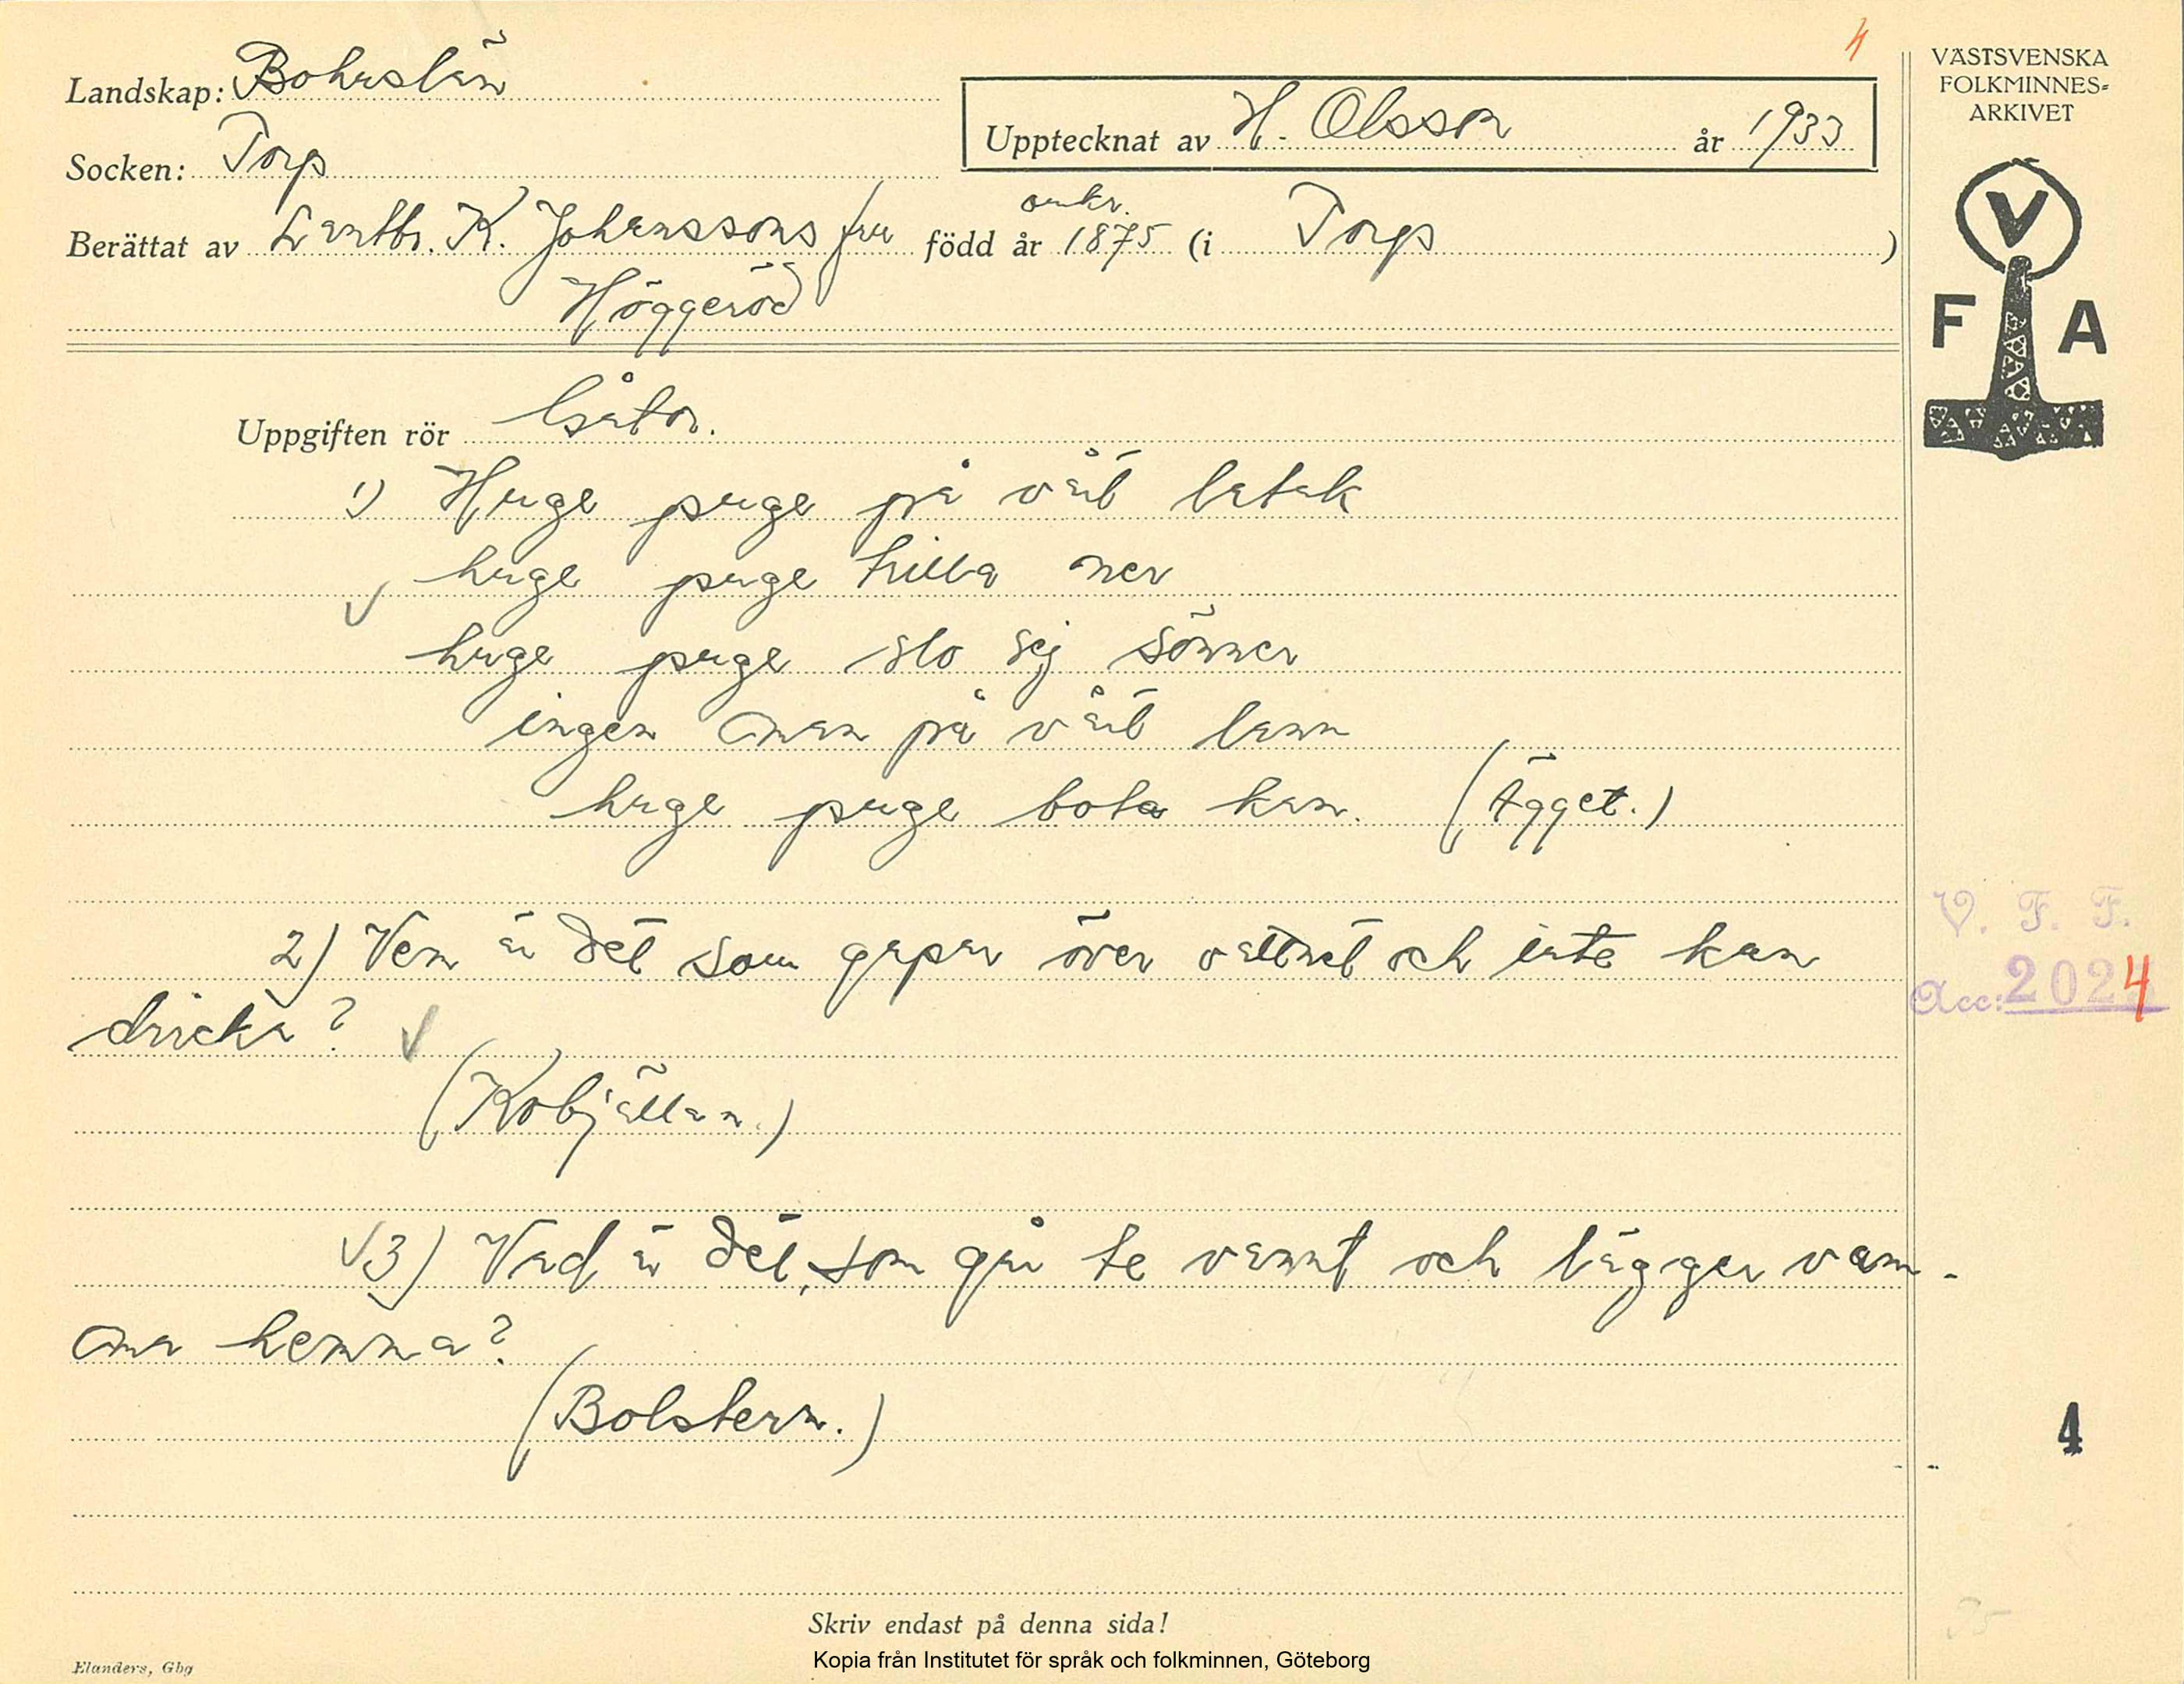 4
VÄSTSVENSKA
FOLKMINNES-
ARKIVET
V
F A
Landskap: Bohuslän
Upptecknat av H. Olsson år 1933
Socken: Torp
omkr.
Berättat av Lantbr. K. Johanssons fru född år 1875 (i Torp)
Höggeröd
Uppgiften rör Gåtor.
1) Huge puge på vårt latak
huge puge trilla ner
huge puge slo sej sönner
ingen man på vårt lann
huge puge bota kan. (Ägget.)
2) Vem är det som gapar över vattnet och inte kan
dricka?
(Kobjällan.)
3) Vad är det, som går te vannt och lägger vam-
ma hemma?
(Bolstern.)
V. F. F.
Acc: 2024
4
Skriv endast på denna sida!
Kopia från Institutet för språk och folkminnen, Göteborg
Elanders, Gbg